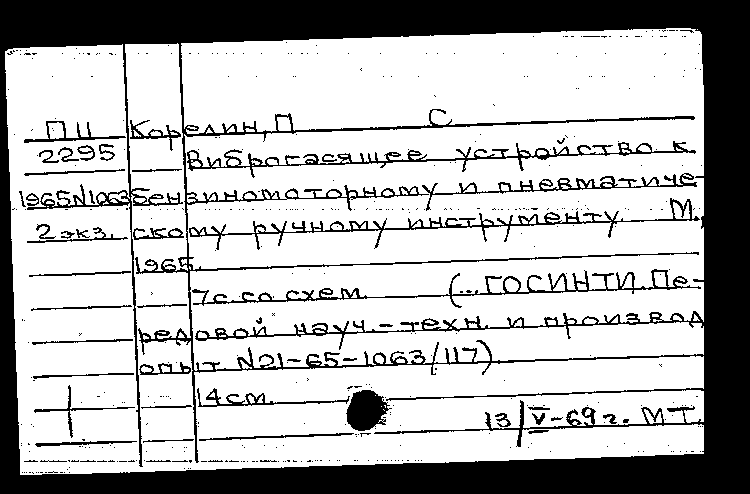 П 11 Корелин, П С
2295 Виброгасящее устройство к
1965 N1063 бензиномоторному и пневматиче-
2 экз. скому ручному инструменту М.,
1965.
7 с. со схем. (...ГОСИНТИ. Пе-
редовой науч.-техн. и производ
опыт N21-65-1063/117).
14 см.
13/V-69 г. МТ.